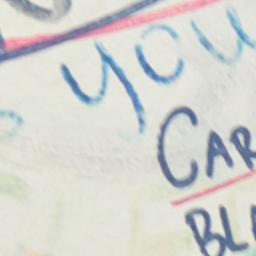 you
CAR
BLA